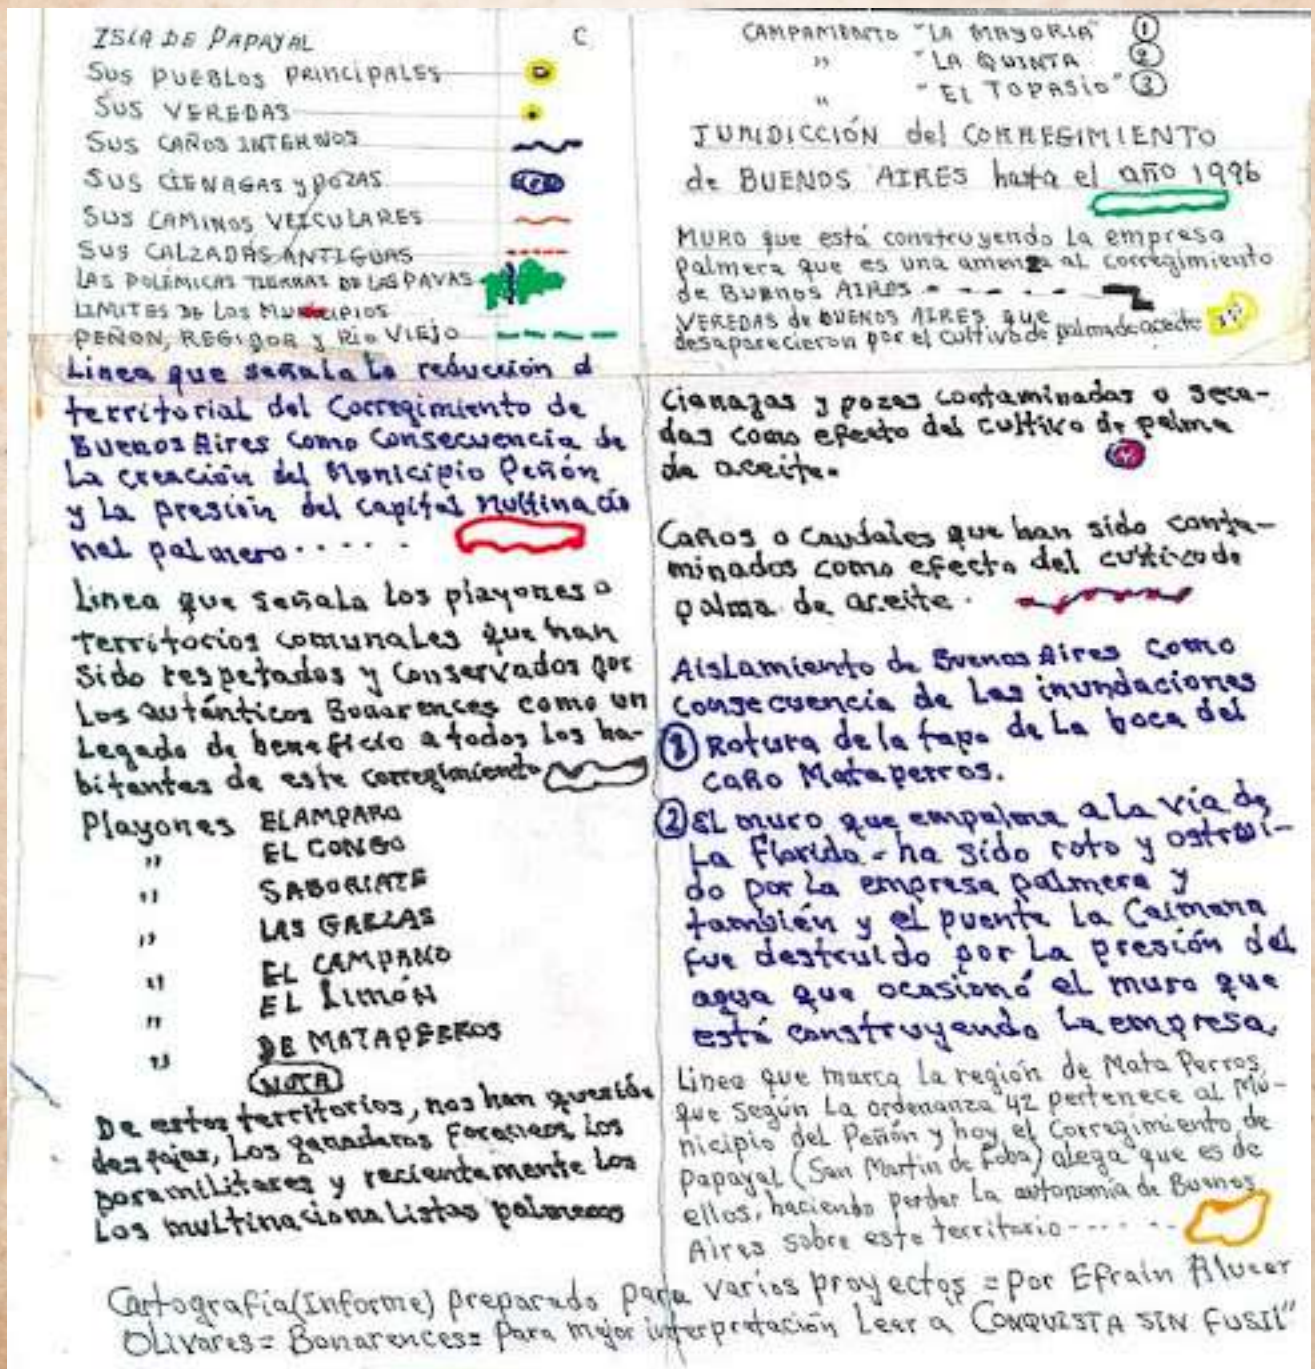 ISLA DE PAPAYAL C
SUS PUEBLOS PRINCIPALES
SUS VEREDAS
SUS CAÑOS INTERNOS
SUS CIENAGAS y POZAS
SUS CAMINOS VEICULARES
SUS CALZADAS ANTIGUAS
LAS POLÉMICAS TIERRAS DE LAS PAVAS
LIMITES DE LOS MUNICIPIOS
PEÑON, REGIDOR y Rio VIEJO
Linea que señala la reducción d
territorial del Corregimiento de
Buenos Aires como consecuencia de
La creación del Municipio Peñón
y La presión del capital multinacio
nal palmero . . . . .
Linea que señala los playones o
territorios comunales que han
sido respetados y conservados por
Los auténticos Bonarences como un
Legado de beneficio a todos los ha-
bitantes de este corregimiento
Playones EL AMPARO
" EL CONGO
" SABORIATE
" LAS GARZAS
" EL CAMPANO
" EL LIMÓN
" DE MATAPERROS
NOTA
De estos territorios, nos han querido
despojar, Los ganaderos foraneos, Los
paramilitares y recientemente Los
Los multinacionalistas palmeros
CAMPAMENTO "LA MAYORIA" 1
" "LA QUINTA 2
" "EL TOPASIO" 3
JURIDICCIÓN del CORREGIMIENTO
de BUENOS AIRES hasta el año 1996
MURO que está construyendo La empresa
palmera que es una amenza al corregimiento
de BUENOS AIRES - - - - -
VEREDAS de BUENOS AIRES que
desaparecieron por el cultivo de palma de aceite
Cianagas y pozas contaminadas o seca-
das como efecto del cultivo de palma
de aceite.
Caños o caudales que han sido conta-
minados como efecto del cultivo de
palma de aceite.
Aislamiento de Buenos Aires como
consecuencia de Las inundaciones
1 Rotura de la tapa de La boca del
caño Mataperros.
2 El muro que empalma a la vía de
La Florida - ha sido roto y ostrui-
do por La empresa palmera y
también y el puente La Caimana
fue destruido por La presión del
agua que ocasionó el muro que
está construyendo La empresa.
Linea que marca La región de Mata Perros,
que según La ordenanza 42 pertenece al Mu-
nicipio del Peñón y hoy el Corregimiento de
Papayal (San Martin de Loba) alega que es de
ellos, haciendo perder La autonomia de Buenos
Aires sobre este territorio - - - - -
Cartografia (Informe) preparado para varios proyectos = por Efrain Alvear
Olivares = Bonarences = Para mejor interpretación Leer a "CONQUISTA SIN FUSIL"